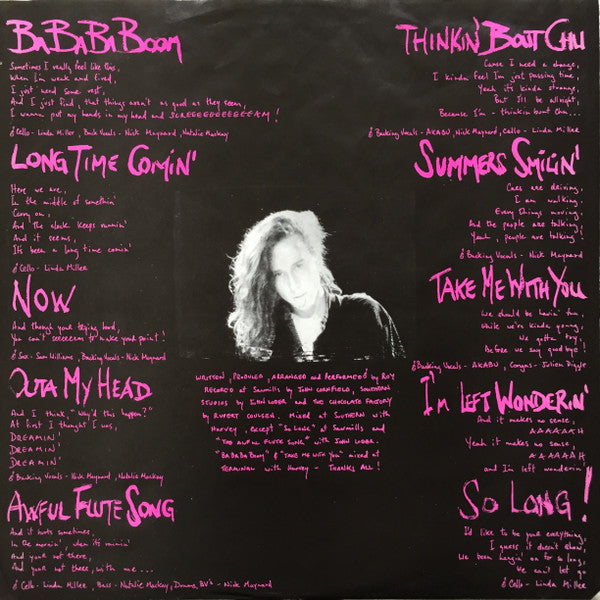 BaBaBaBoom
Sometimes I really feel like this,
When I'm weak and tired,
I just need some rest,
And I just find, that things aren't as good as they seem,
I wanna put my hands in my head and SCREEEEEEEEEEEEAM!
Cello - Linda Miller, Back Vocals - Nick Maynard, Natalie Mackay
Long Time Comin'
Here we are,
In the middle of somethin'
Carry on,
And the clock keeps runnin'
And it seems,
It's been a long time comin'
Cello - Linda Miller
Now
And though your trying hard,
You can't seeeeeem to make your point!
Sax - Sam Williams, Backing Vocals - Nick Maynard
Outa My Head
And I think, "Why'd this happen?"
At first I thought I was,
DREAMIN'
DREAMIN'
DREAMIN'
Backing Vocals - Nick Maynard, Natalie Mackay
Awful Flute Song
And it hurts sometimes,
In the mornin', when its rainin'
And your not there,
And your not there, with me...
Cello - Linda Miller, Bass - Natalie Mackay, Drums, BV's - Nick Maynard
Written, produced, arranged and performed by Roy
Recorded at Sawmills by John Cornfield, Southern
Studios by John Loder and The Chocolate Factory
by Rupert Coulson. Mixed at Southern with
Harvey, except "So Long" at Sawmills and
"The Awful Flute Song" with John Loder.
"BaBaBaBoom" & "Take Me With You" mixed at
Terminal with Harvey - Thanks all!
Thinkin' Bout Chu
Cause I need a change,
I kinda feel I'm just passing time
Yeah its kinda strange,
But I'll be allright,
Because I'm - thinkin bout chu...
Backing Vocals - AKABU, Nick Maynard, Cello - Linda Miller
Summers Smilin'
Cars are driving,
I am walking.
Every things moving,
And the people are talking
Yeah, people are talking!
Backing Vocals - Nick Maynard
Take Me With You
We should be havin' fun,
While we're kinda young,
We gotta try,
Before we say goodbye!
Backing Vocals - AKABU, Congas - Julien Diggle
I'm Left Wonderin'
And it makes no sense,
AAAAAAH
Yeah it makes no sense,
AAAAAAH
and I'm left wonderin'
So Long!
I'd like to be your everything,
I guess it doesn't show,
We been hangin' on for so long,
We can't let go
Cello - Linda Miller